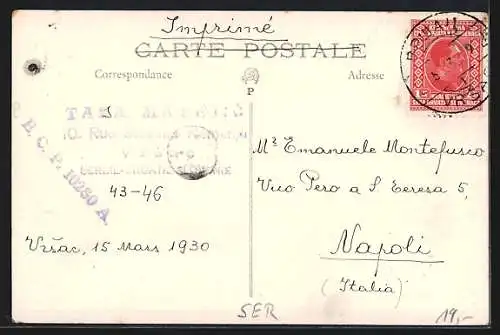 Imprimé
CARTE POSTALE
Correspondance
Adresse
P
10.
43-46
B. C. P. 10280 A.
Vršac, 15 Mars 1930
Mr Emanuele Montefusco
Vico Pero a S. Teresa 5,
Napoli
(Italia)
SER
19,-